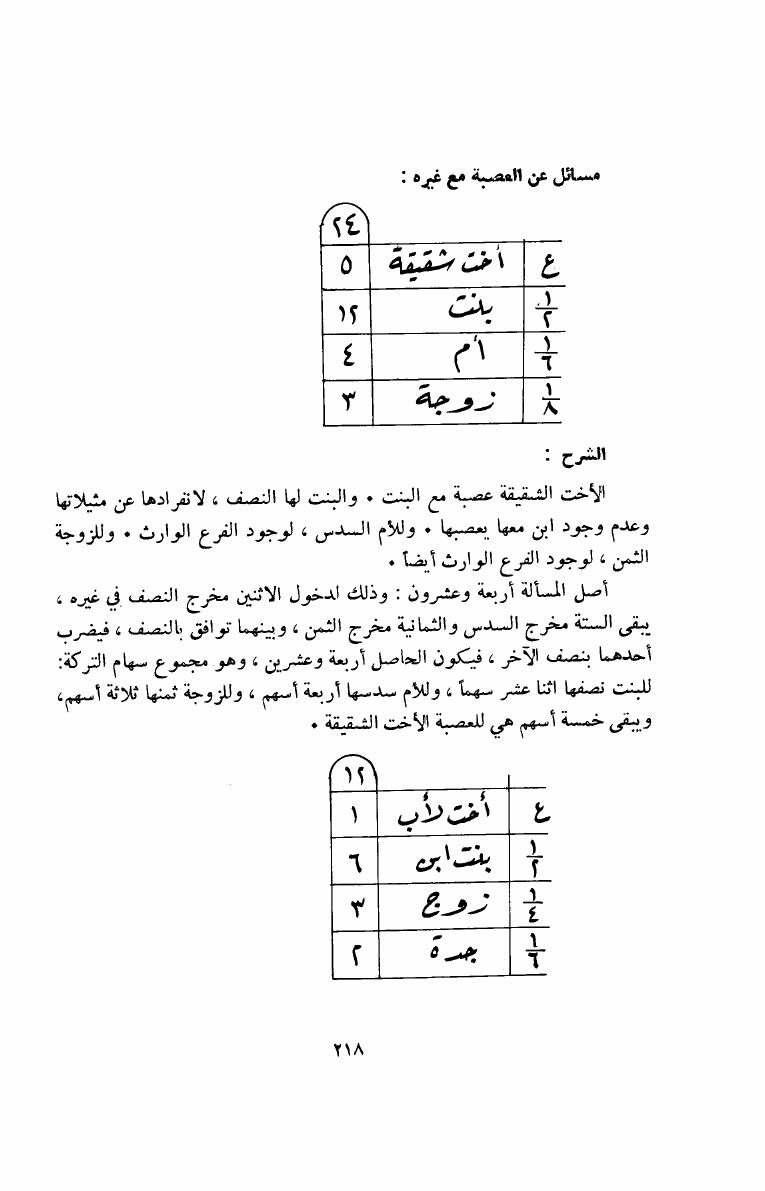 مسائل عن العصبة مع غيره :
٢٤
ع أخت شقيقة ٥
١/٢ بنت ١٢
١/٦ أم ٤
١/٨ زوجة ٣
الشرح :
الأخت الشقيقة عصبة مع البنت • والبنت لها النصف ، لانفرادها عن مثيلاتها
وعدم وجود ابن معها يعصبها • وللأم السدس ، لوجود الفرع الوارث • وللزوجة
الثمن ، لوجود الفرع الوارث أيضاً •
أصل المسألة أربعة وعشرون : وذلك لدخول الاثنين مخرج النصف في غيره ،
يبقى الستة مخرج السدس والثمانية مخرج الثمن ، وبينهما توافق بالنصف ، فيضرب
أحدهما بنصف الآخر ، فيكون الحاصل أربعة وعشرين ، وهو مجموع سهام التركة:
للبنت نصفها اثنا عشر سهماً ، وللأم سدسها أربعة أسهم ، وللزوجة ثمنها ثلاثة أسهم،
ويبقى خمسة أسهم هي للعصبة الأخت الشقيقة •
١٢
ع أخت لأب ١
١/٢ بنت ابن ٦
١/٤ زوج ٣
١/٦ جدة ٢
٢١٨